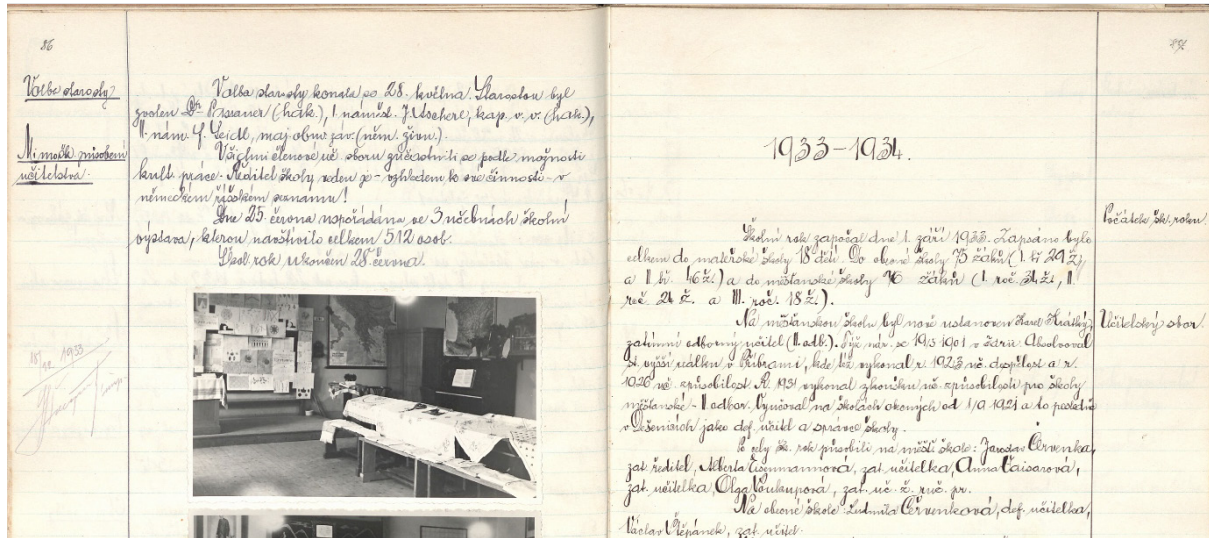 86
Volba starosty
Volba starosty konala se 28. května. Starostou byl
zvolen Dr. Prosauer (hak.), I. náměst. J. Ascherl, kap. v. v. (hak.),
II. nám. F. Seidl, maj. obuv. záv. (něm. živn.).
Mimošk. působení
učitelstva.
Všichni členové uč. sboru zúčastnili se podle možnosti
kult. práce. Ředitel školy veden je - vzhledem ke své činnosti - v
německém říšském seznamu!
Dne 25. června uspořádána ve 3 učebnách školní
výstava, kterou navštívilo celkem 512 osob.
Škol. rok ukončen 28. června.
1933
1933-1934.
Počátek šk. roku.
Školní rok započal dne 1. září 1933. Zapsáno bylo
celkem do mateřské školy 18 dětí. Do obecné školy 75 žáků (I. tř. 29 ž.
a II. tř. 46 ž.) a do měšťanské školy 76 žáků (I. roč. 34 ž., II.
roč. 24 ž. a III. roč. 18 ž.).
Učitelský sbor.
Na měšťanskou školu byl nově ustanoven Karel Krátký,
zatímní odborný učitel (II. odb.). Týž nar. se 1901 v
st. vyšší reálku v Příbrami, kde též vykonal r. 1923 uč. dospělost a r.
1926 uč. způsobilost. R. 1931 vykonal zkoušku uč. způsobilosti pro školy
měšťanské - II. odbor. Vyučoval na školách obecných od 1/9 1921 a to posledně
v Dešenicích jako def. učitel a správce školy.
Po celý šk. rok působili na měšť. škole: Jaroslav Červenka,
zat. ředitel, Alberta Eisenmannová, zat. učitelka, Anna Caisarová,
zat. učitelka, Olga Voutaupová, zat. uč. ž. ruč. pr.
Na obecné škole: Ludmila Červenková, def. učitelka,
Václav Štěpánek, zat. učitel.